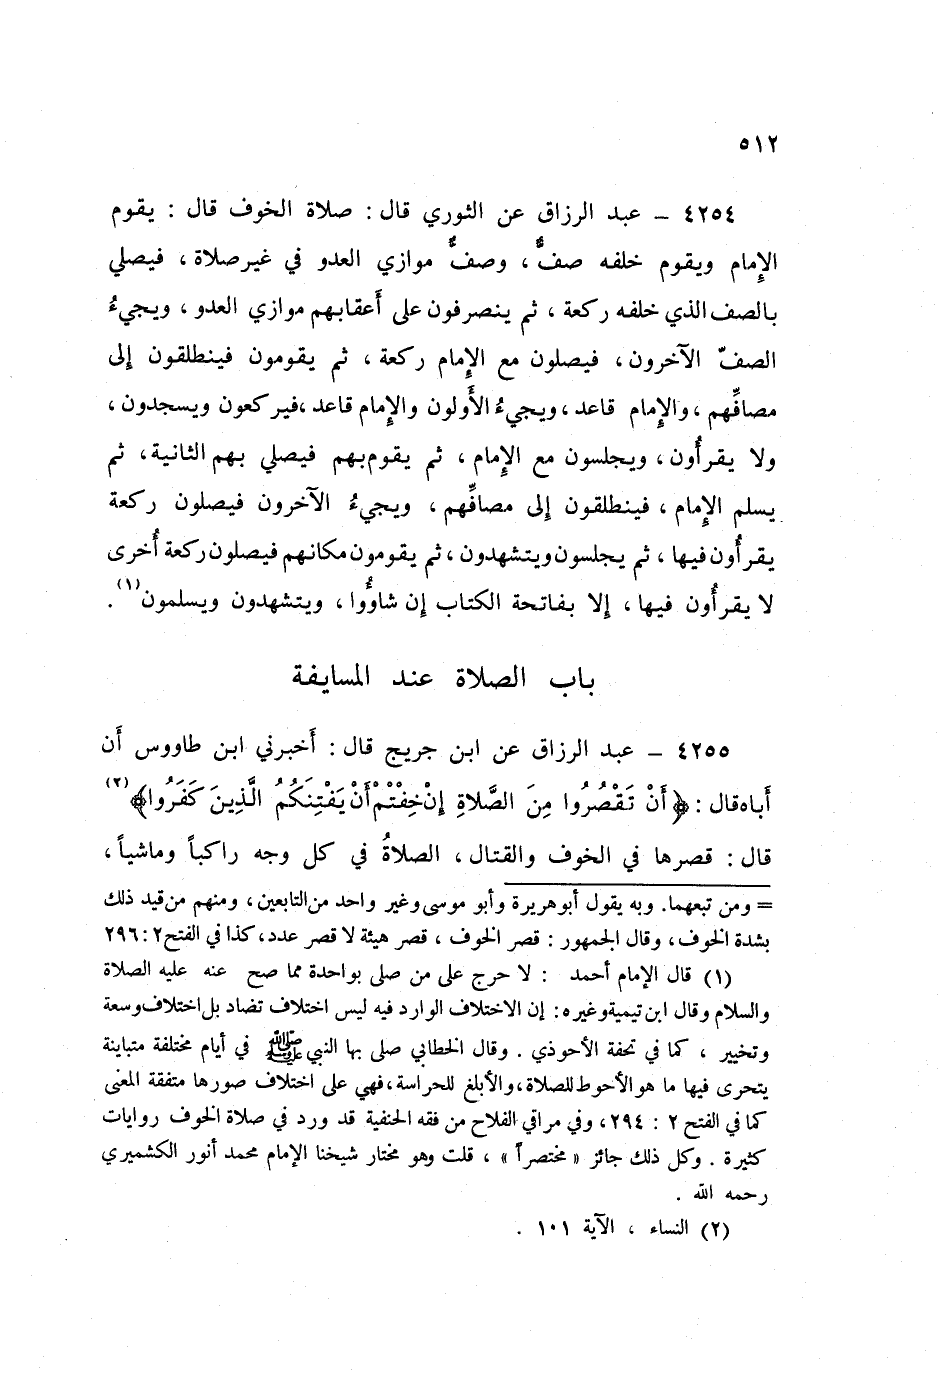 ٥١٢
٤٢٥٤ ــ عبد الرزاق عن الثوري قال : صلاة الخوف قال : يقوم
الإِمام ويقوم خلفه صفٌّ ، وصفٌّ موازي العدو في غير صلاة ، فيصلي
بالصف الذي خلفه ركعة ، ثم ينصرفون على أَعقابهم موازي العدو ، ويجيءُ
الصفّ الآخرون ، فيصلون مع الإِمام ركعة ، ثم يقومون فينطلقون إلى
مصافِّهم ، والإِمام قاعد ، ويجيءُ الأَولون والإِمام قاعد ، فيركعون ويسجدون ،
ولا يقرأُون ، ويجلسون مع الإِمام ، ثم يقوم بهم فيصلي بهم الثانية ، ثم
يسلم الإِمام ، فينطلقون إلى مصافِّهم ، ويجيءُ الآخرون فيصلون ركعة
يقرأُون فيها ، ثم يجلسون ويتشهدون ، ثم يقومون مكانهم فيصلون ركعة أُخرى
لا يقرأُون فيها ، إلا بفاتحة الكتاب إن شاؤُوا ، ويتشهدون ويسلمون(١) .
باب الصلاة عند المسايفة
٤٢٥٥ ــ عبد الرزاق عن ابن جريج قال : أَخبرني ابن طاووس أَن
أَباه قال : ﴿أَنْ تَقْصُرُوا مِنَ الصَّلاةِ إِنْ خِفْتُمْ أَنْ يَفْتِنَكُمُ الَّذِينَ كَفَرُوا﴾(٢)
قال : قصرها في الخوف والقتال ، الصلاةُ في كل وجه راكباً وماشياً ،
= ومن تبعهما. وبه يقول أبو هريرة وأبو موسى وغير واحد من التابعين ، ومنهم من قيد ذلك
بشدة الخوف ، وقال الجمهور : قصر الخوف ، قصر هيئة لا قصر عدد ، كذا في الفتح ٢ : ٢٩٦
(١) قال الإمام أحمد : لا حرج على من صلى بواحدة مما صح عنه عليه الصلاة
والسلام وقال ابن تيمية وغيره : إن الاختلاف الوارد فيه ليس اختلاف تضاد بل اختلاف وسعة
وتخيير ، كما في تحفة الأحوذي . وقال الخطابي صلى بها النبي ﷺ في أيام مختلفة متباينة
يتحرى فيها ما هو الأحوط للصلاة ، والأبلغ للحراسة ، فهي على اختلاف صورها متفقة المعنى
كما في الفتح ٢ : ٢٩٤ ، وفي مراقي الفلاح من فقه الحنفية قد ورد في صلاة الخوف روايات
كثيرة . وكل ذلك جائز « مختصراً » ، قلت وهو مختار شيخنا الإمام محمد أنور الكشميري
رحمه الله .
(٢) النساء ، الآية ١٠١ .